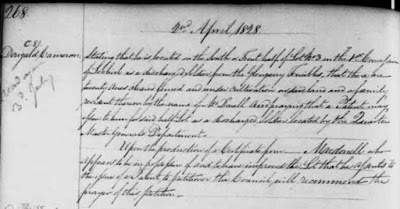 268.
2nd April 1828.
Dougald Cameron
Stating that he is located on the South or Front half of Lot No 3 in the 1st Concession
of as a discharged Soldier from the Glengarry Fencibles, that there are
twenty two acres cleared and under cultivation and a family
resident thereon by the name of McDonell and praying that a Patent may
issue to him for said half Lot as a discharged Soldier located by the Quarter
Master General's Department.
Upon the production of a Certificate from Macdonell who
appears to be in possession of and to have improved the Lot that he assents to
the issue of a to petitioner the Council will recommend the
prayer of this petition.